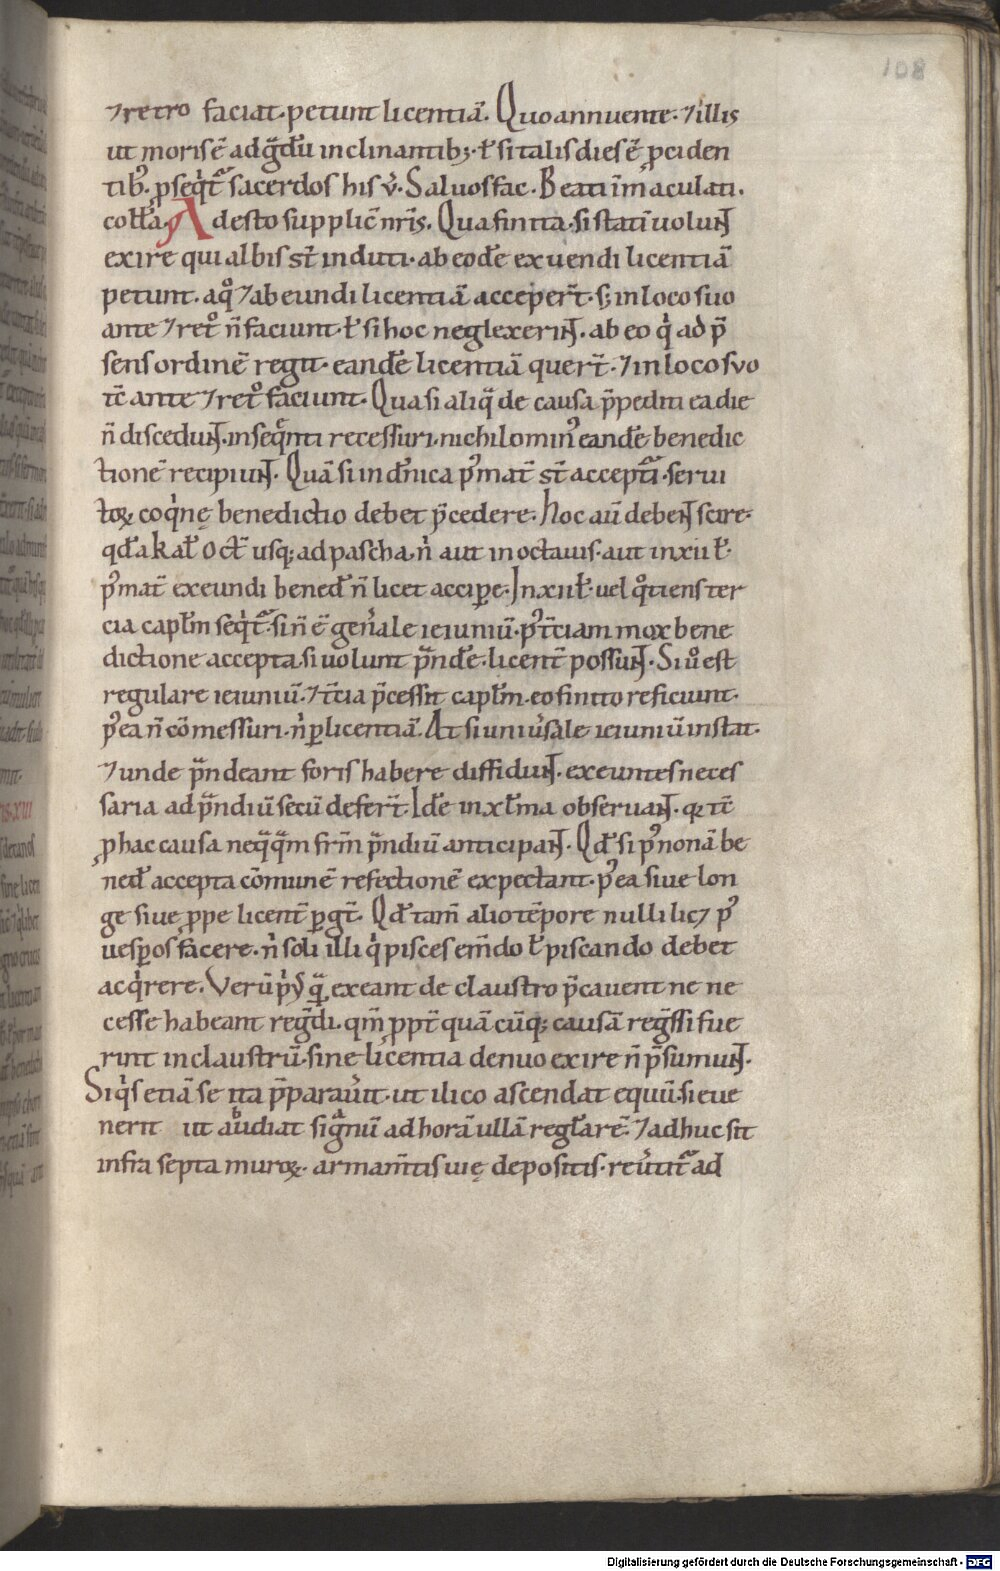 108
⁊retro faciat· petunt licentiā. Quo annuente· ⁊illis
ut moris ē ad gͣdū inclinantibꝫ· ł si talis dies ē ꝓciden
tibꝰ· ꝓseqͥt᷑ sacerdos his v̓· Saluos fac· Beati īmaculati.
coll̄a· Adesto supplic̄ nr̄is. Qua finita· si statī uolunt
exire qui albis st̄ induti· ab eodē exuendi licentiā
petunt. aqͦ ⁊abeundi licentiā acceper̄t· sꝫ in loco suo
ante ⁊ret̓ n̄ faciunt· ł si hoc neglexerint· ab eo qͥ ad p̄
sens ordinē regit· eandē licentiā quer̄t· ⁊in loco suo
tc̄ ante ⁊ret̓ faciunt· Qua si aliqͣ de causa p̄pediti ea die
n̄ discedunt· in seqͣnti recessuri· nichilominꝰ eandē benedic
tionē recipiunt· Quā si in dn̄ica pꝰ mat̄ st̄ accepturi· serui
toꝝ coqͥnę benedictio debet p̄cedere· Hoc aū debent scire·
qd̄ a kał oct̄ usqꝫ ad pascha· nͥ aut in octauis· aut in xii ł·
pꝰ mat̄ exeundi bened̄ n̄ licet acciꝑe· In xii ł· uel qͦtiens ter
cia capłm seqͥt᷑· si n̄ ē gen̓ale ieiuniū· pꝰ t̄ciam mox bene
dictione accepta· si uolunt pͣndē· licent̄ possunt· Si uͦ est
regulare ieiuniū· ⁊t̄cia p̄cessit capłm· eo finito reficiunt·
pꝰea n̄ cōmessuri· nͥ ꝑ licentiā· At si uniu̓sale ieiuniū instat·
⁊unde pͣndeant foris habere diffidunt· exeuntes neces
saria ad pͣndiū secū defer̄t· Idē in xłma obseruant· qꝛ tc̄
ꝓ hac causa neqͣqͣm frm̄ pͣndiū anticipant· Qd̄ si pꝰ nonā be
ned̄ accepta cōmunē refectionē expectant· pꝰea siue lon
ge siue ꝓpe licent̄ ꝑgt̄· Qd̄ tam̄ alio tēpore nulli licꝫ pꝰ
uesꝑos facere· nͥ soli illi qͥ pisces em̄do ł piscando debet
acqͥrere. Verū pͥusqͣ exeant de claustro p̄caueant ne ne
cesse habeant reg̓di· qm̄ ꝓpt̄ quācūqꝫ causā reg̓ssi fue
rint in claustrū· sine licentia denuo exire n̄ p̄sumunt·
Siqͥs etiā se ita p̄parau̓it· ut ilico ascendat equū· si eue
nerit ut audiat signū ad horā ullā regłarē· ⁊adhuc sit
infra septa muroꝝ· armam̄tis uię depositis· reu̓tit᷑ ad
Digitalisierung gefördert durch die Deutsche Forschungsgemeinschaft - DFG